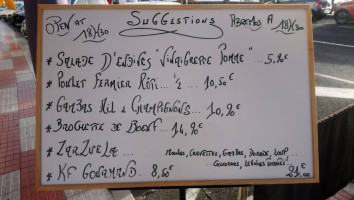 OPEN AT 18H30 SUGGESTIONS ABRIMOS A 18H30
* SALADE D'ENDIVES "VINAIGRETTE POMME" ... 5,90€
* POULET FERMIER RÔTI. ½ ... 10,50€
* GAMBAS MIL & CHAMPIGNONS... 10,90€
* BROCHETTE DE BOEUF... 14,90€
* ZARZUELA... MOULES, CREVETTES, GAMBAS, DORADE, LOUP...
LÉGUMES 21,00€
* KF GOURMAND. 8,50€